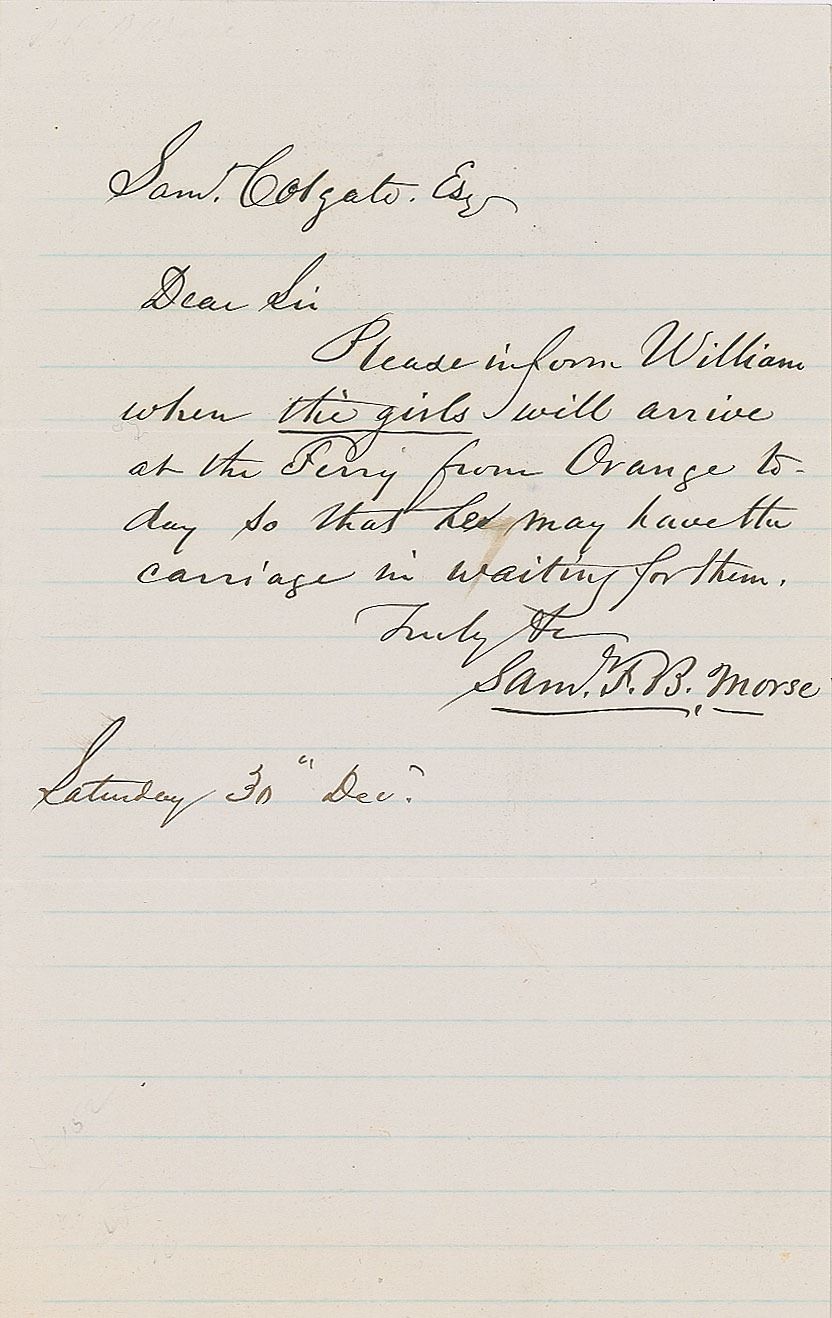 Saml. Colgate. Esq
Dear Sir
Please inform William
when the girls will arrive
at the Ferry from Orange to-
day so that he may have the
carriage in waiting for them.
Truly Yr
Saml. F. B. Morse
Saturday 30" Dec.